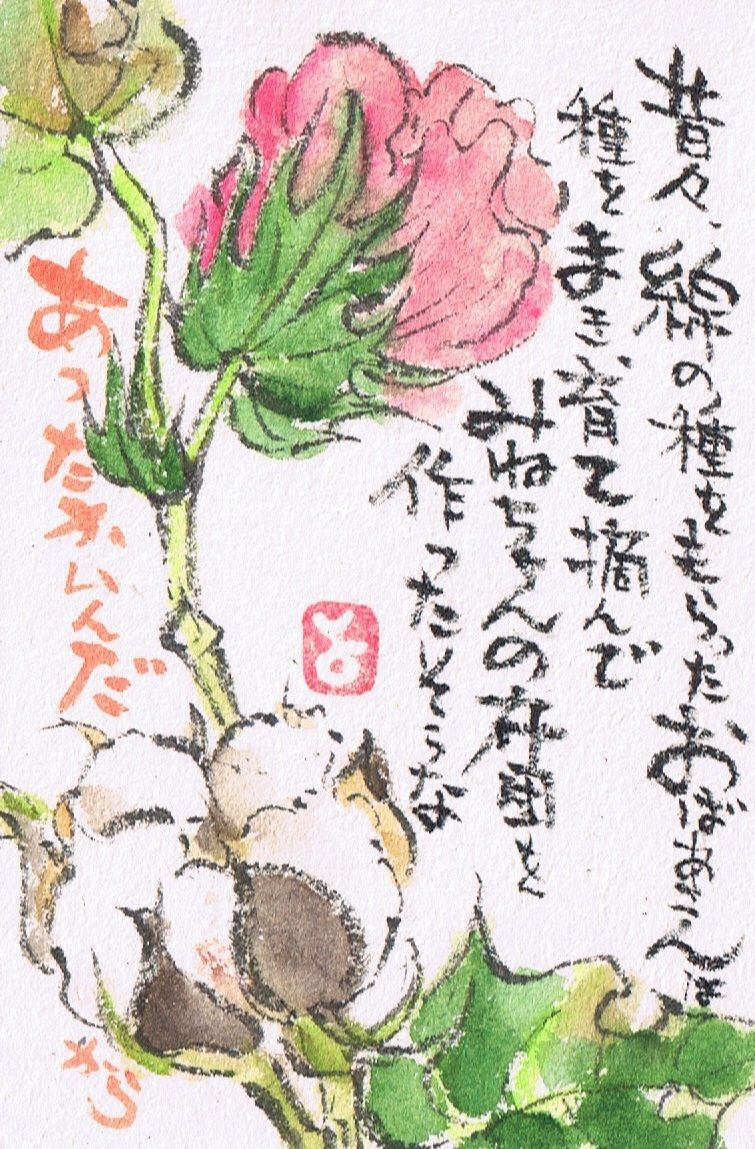 昔々、綿の種をもらったおばあさんは
種をまき、育て摘んで
みねちゃんの布団を
作ったそうな
あったかいんだ
から